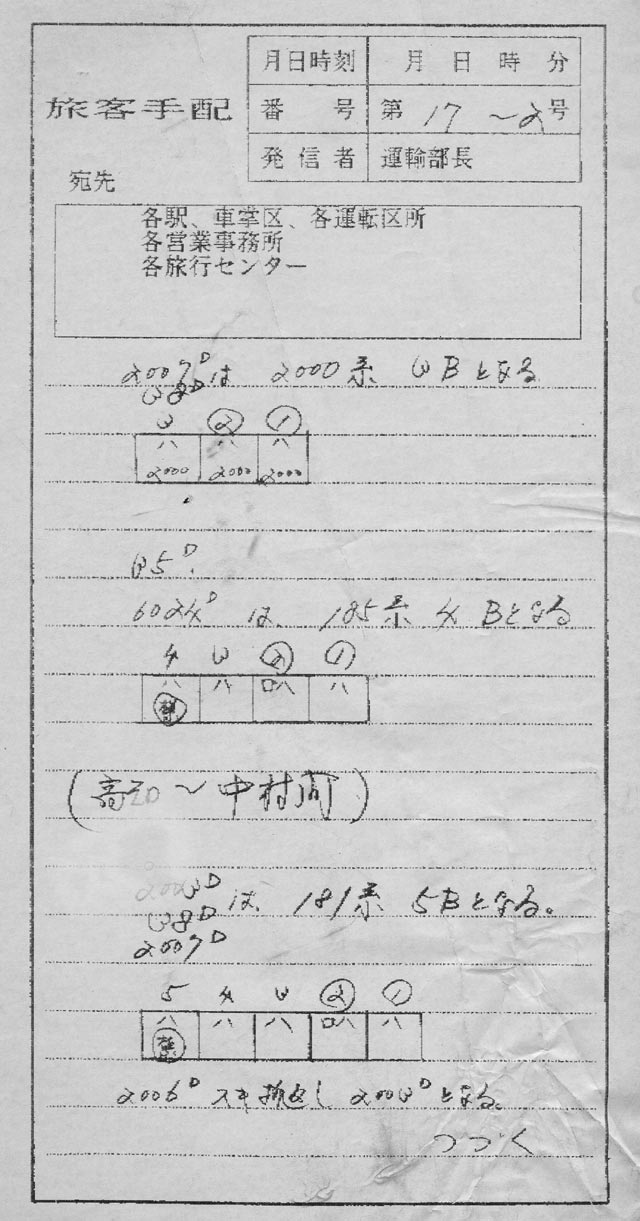 旅客手配
月日時刻 月 日 時 分
番 号 第 17 ~2 号
発信者 運輸部長
宛先
各駅、車掌区、各運転区所
各営業事務所
各旅行センター
2009Dは 2000系 3Bとなる
38D
3 ② ①
ハ ハ ハ
2000 2000 2000
35D
6024Dは、185系 4Bとなる
4 3 ② ①
ハ ハ ロハ ハ
禁
(高知~中村間)
2003D
38D は、181系 5Bとなる。
2009D
5 4 3 ② ①
ハ ハ ハ ロハ ハ
禁
2006D スキ折返し 2003Dとなる。
つづく